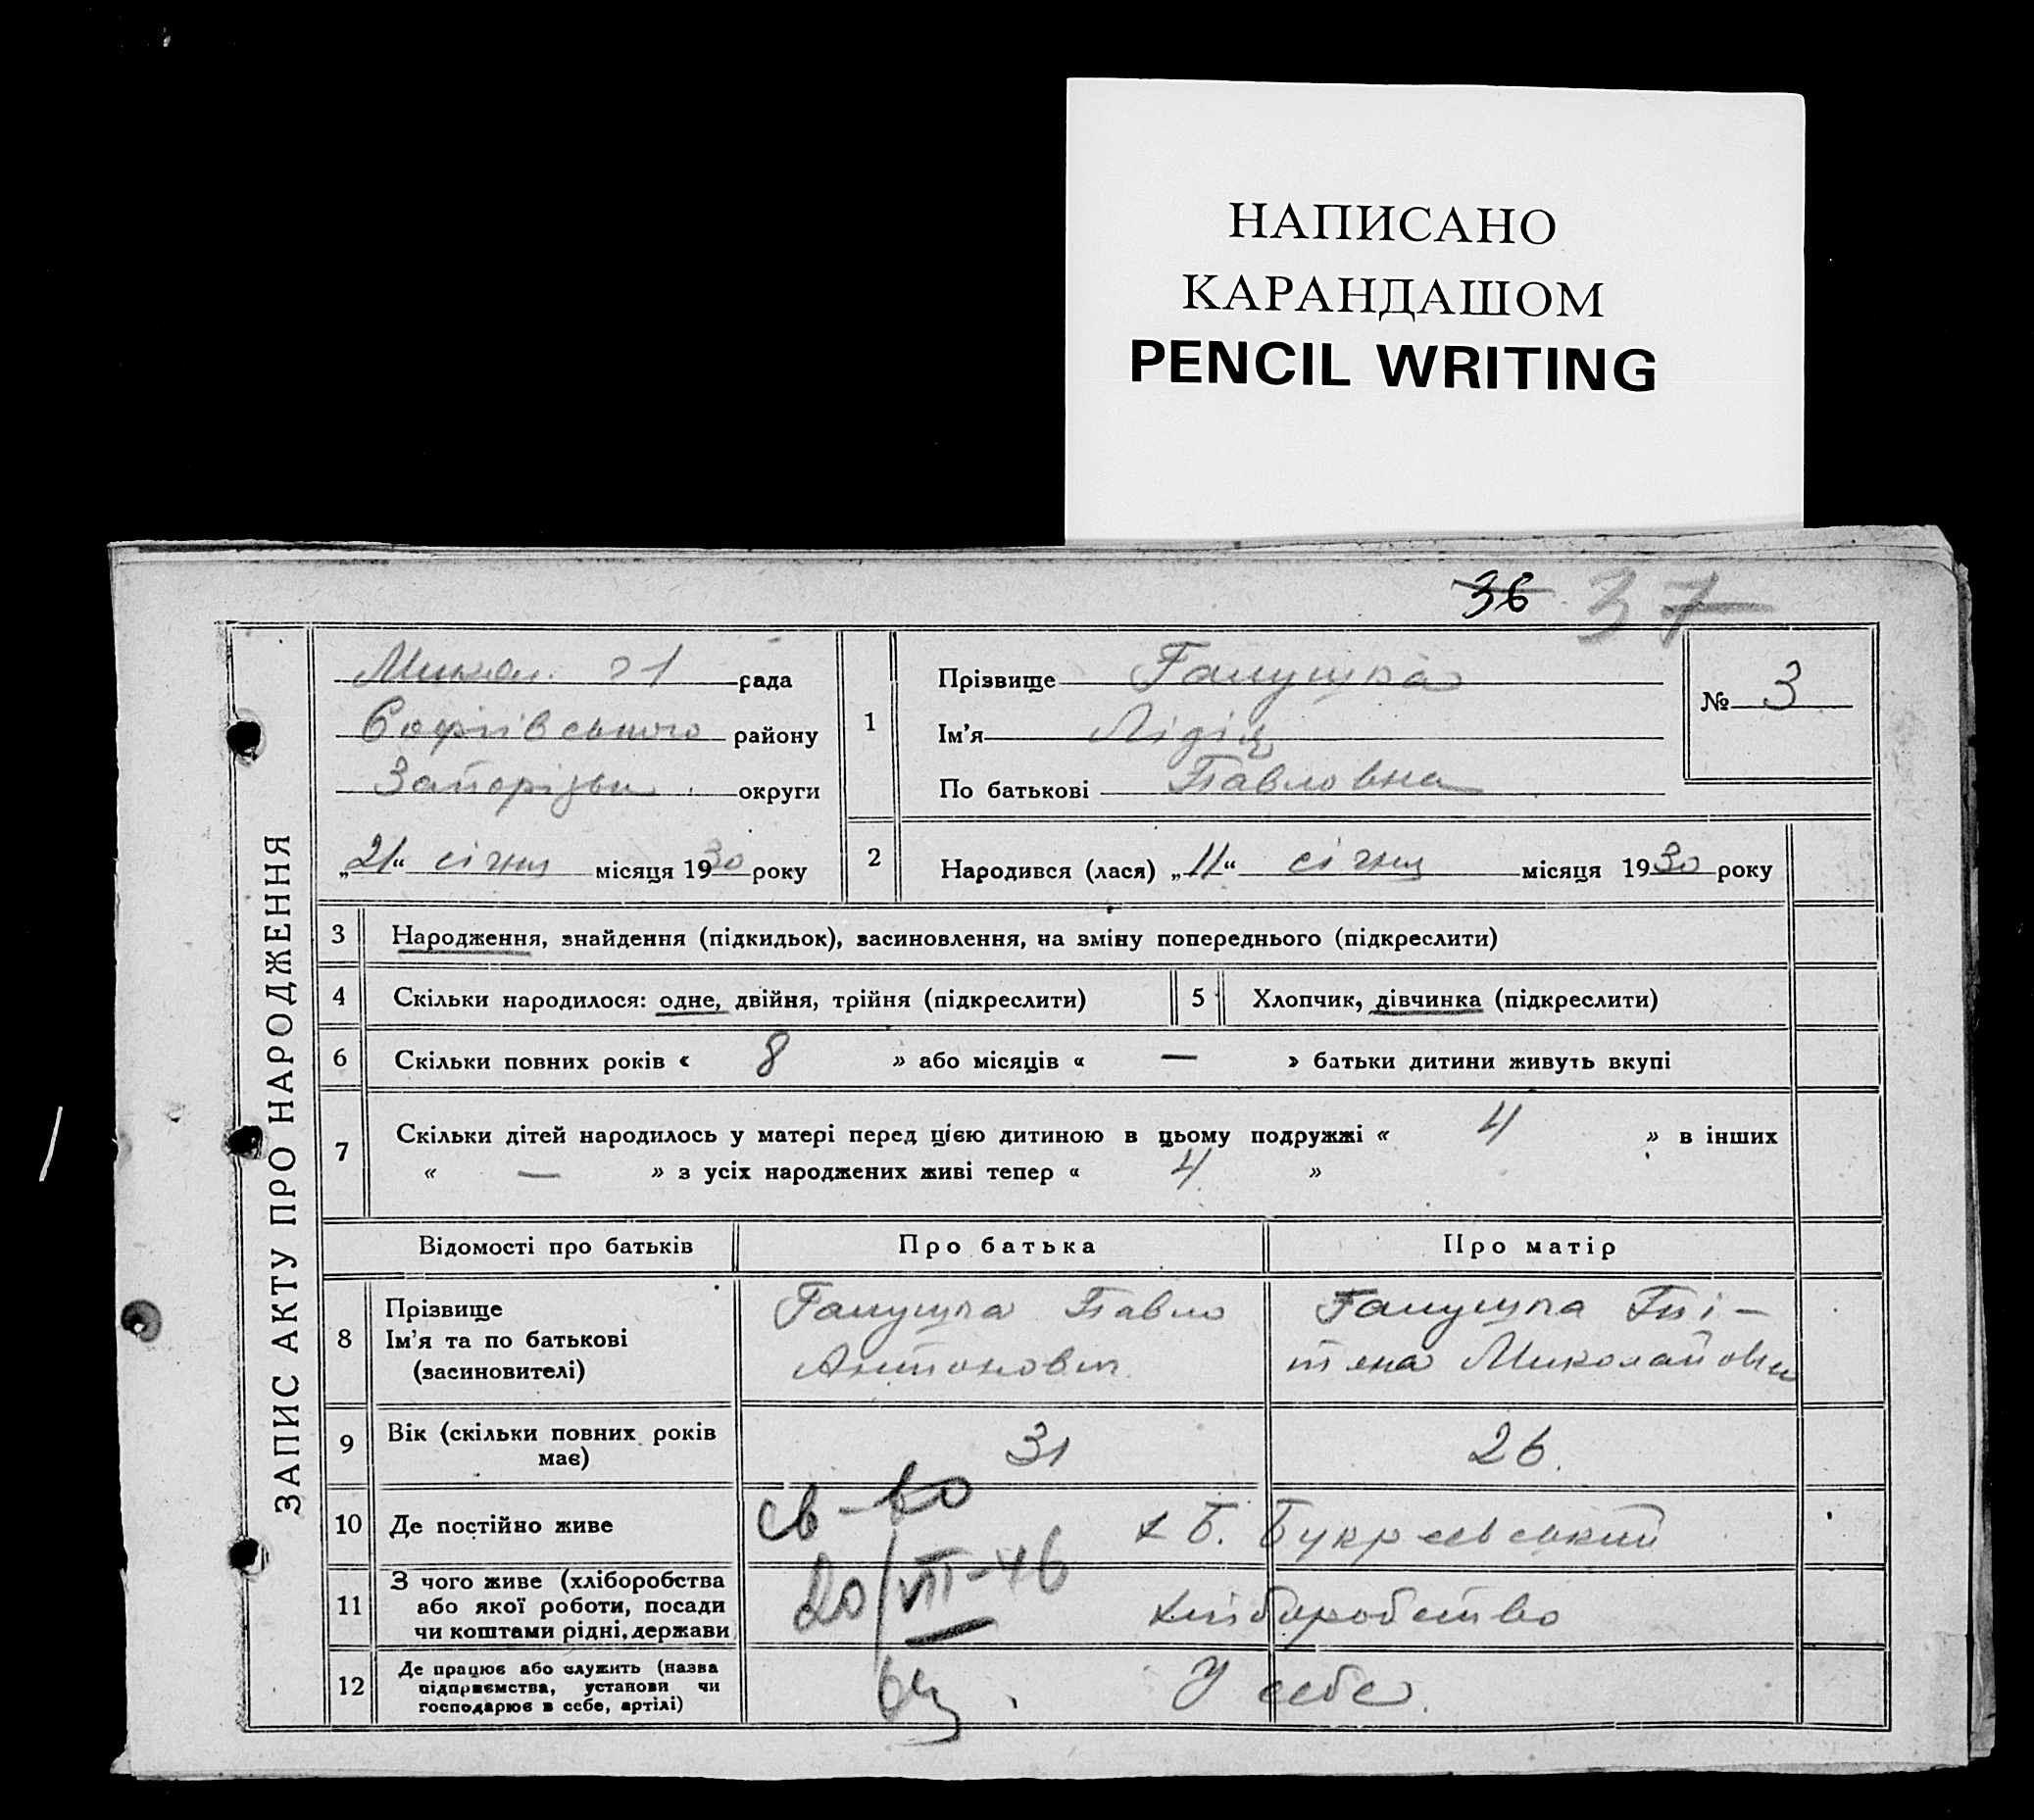 НАПИСАНО
КАРАНДАШОМ
PENCIL WRITING
36 37
ЗАПИС АКТУ ПРО НАРОДЖЕННЯ
Микол. 21 рада
Софіївського району
Запорізьк округи
„21“ січня місяця 1930 року
1 Прізвище Галушка
Ім'я Лідія
По батькові Павловна
№ 3
2 Народився (лася) „11“ січня місяця 1930 року
3 Народження, знайдення (підкидьок), засиновлення, на зміну попереднього (підкреслити)
4 Скільки народилося: одне, двійня, трійня (підкреслити) 5 Хлопчик, дівчинка (підкреслити)
6 Скільки повних років « 8 » або місяців « — » батьки дитини живуть вкупі
7 Скільки дітей народилось у матері перед цією дитиною в цьому подружжі « 4 » в інших
« — » з усіх народжених живі тепер « 4 »
Відомості про батьків Про батька Про матір
8 Прізвище
Ім'я та по батькові
(засиновителі)
Галушка Павло
Антонович
Галушка
Миколаївна
9 Вік (скільки повних років
має)
31 26
10 Де постійно живе
св-во
х Б. Букреевський
11 З чого живе (хліборобства
або якої роботи, посади
чи коштами рідні, держави
20/VII-46
хліборобство
12 Де працює або служить (назва
підприємства, установи чи
господарює в себе, артілі)
У себе